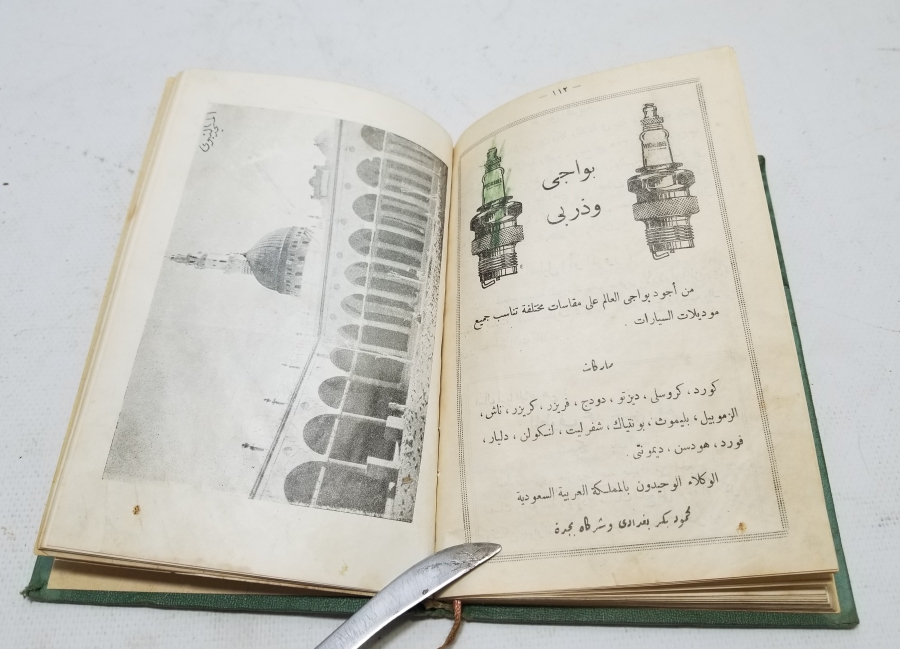 - ١١٢ -
بواجى
وذربى
من أجود بواجى العالم على مقاسات مختلفة تناسب جميع
موديلات السيارات .
ماركات
كورد، كروسلى، ديزتو، دودج، فريزر، كريزر، ناش،
الزموبيل، بليموث، بونتياك، شفرليت، لنكولن، دليار،
فورد، هودسن، ديمونتى.
الوكلاء الوحيدون بالمملكة العربية السعودية
محمود بكر بغدادى وشركاه بجدة